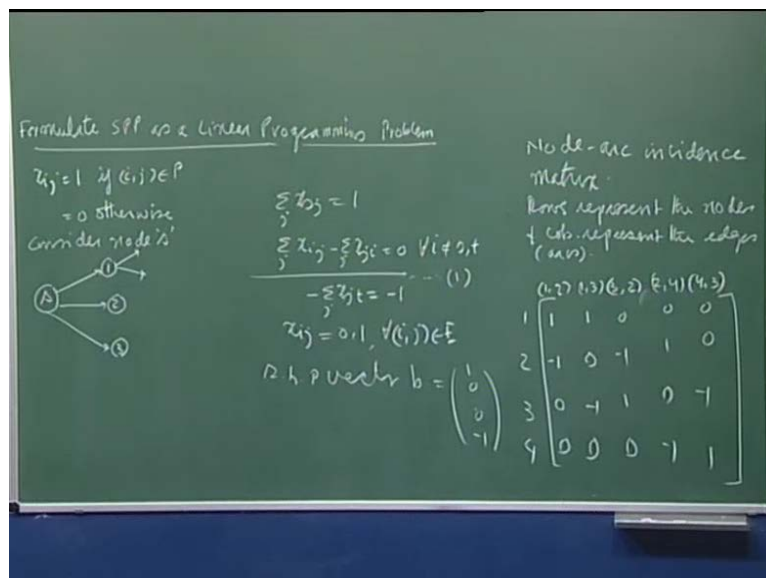 Formulate SPP as a Linear Programming Problem
x_ij = 1 if (i,j) ∈ P
= 0 otherwise
consider node 's'
s
1
2
3
Σ_j x_sj = 1
Σ_j x_ij - Σ_j x_ji = 0 ∀ i ≠ s,t
--- (1)
-Σ_j x_jt = -1
x_ij = 0,1, ∀(i,j) ∈ E
r.h.s vector b = (1 0 0 -1)
Node-arc incidence
matrix.
Rows represent the nodes
& cols. represent the edges
(arcs).
(1,2) (1,3) (3,2) (2,4) (4,3)
1 1 1 0 0 0
2 -1 0 -1 1 0
3 0 -1 1 0 -1
4 0 0 0 -1 1